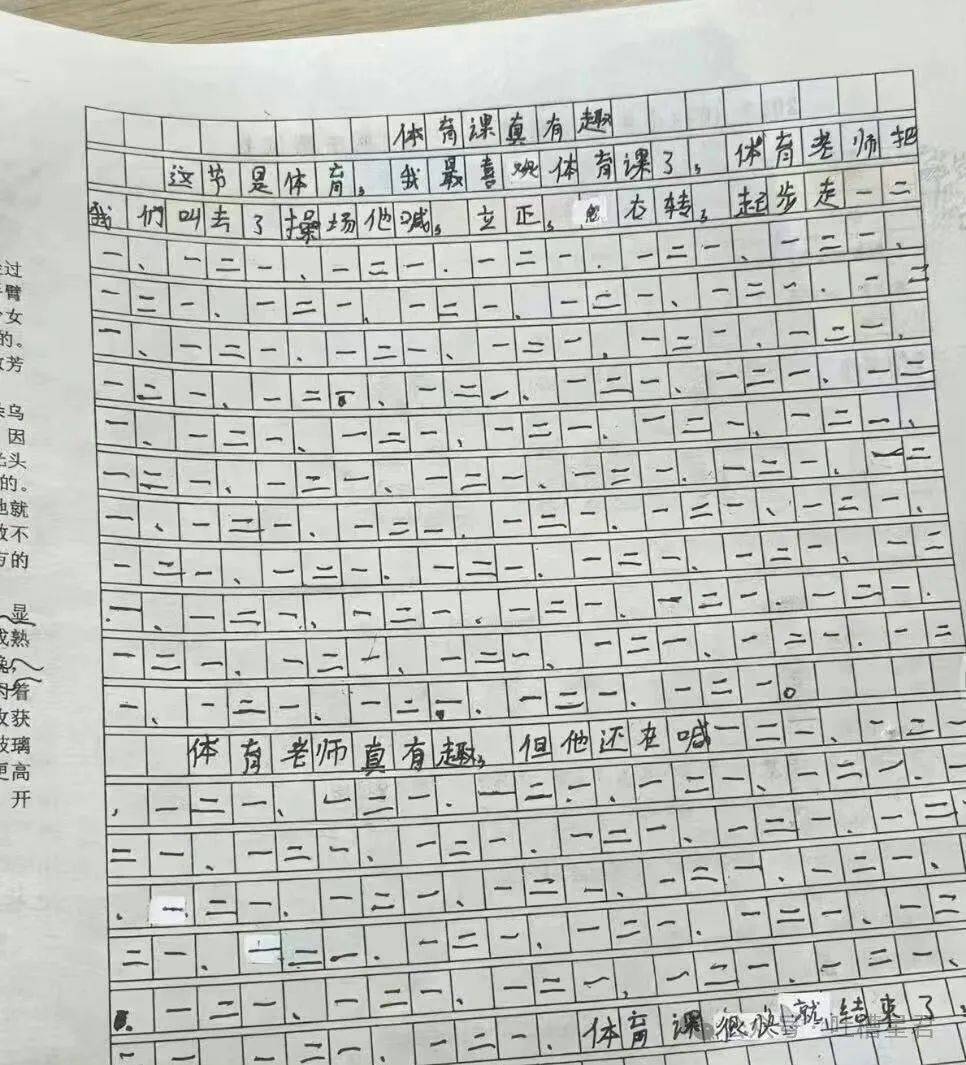 体育课真有趣
这节是体育，我最喜欢体育课了，体育老师把
我們叫去了操场他喊，立正，右转，起步走一二
一、一二一、一二一、一二一、一二一、一二一、
一二一、一二一、一二一、一二一、一二一、一二
一、一二一、一二一、一二一、一二一、一二一、
一二一、一二一、一二一、一二一、一二一、一二
一、一二一、一二一、一二一、一二一、一二一、
一二一、一二一、一二一、一二一、一二一、一二
一、一二一、一二一、一二一、一二一、一二一、
一二一、一二一、一二一、一二一、一二一、一二
一、一二一、一二一、一二一、一二一、一二一、
一二一、一二一、一二一、一二一、一二一、一二
一、一二一、一二一、一二一、一二一。
体育老师真有趣，但他还在喊一二一、一二一
、一二一、一二一、一二一、一二一、一二一、一
二一、一二一、一二一、一二一、一二一、一二一
、一二一、一二一、一二一、一二一、一二一、
二一、一二一、一二一、一二一、一二一、一二
、一二一、一二一、一二一、一二一、一二一、
二一、一二一、一二一、体育课很快就结束了。
过
臂
女
的。
芳
乌
因
头
的。
就
不
的
显
成熟
着
收获
玻璃
更高
开